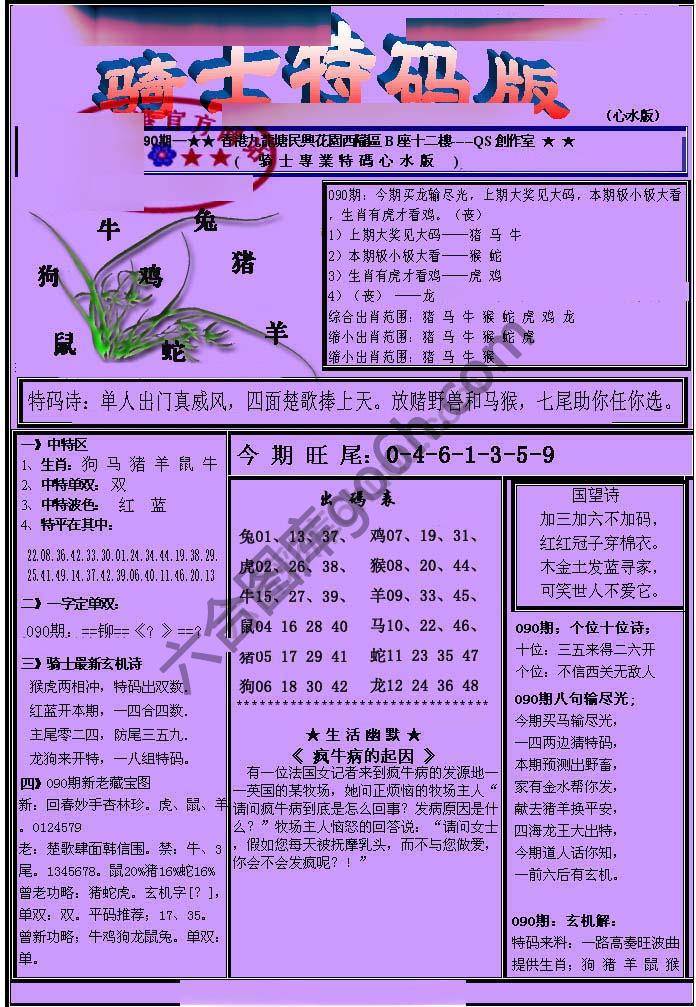 骑士特码版
(心水版)
090期—★★ 香港九龍塘民興花園西福區 B 座十二樓----QS 創作室 ★ ★
( 骑士專業特碼心水版 )
官方
兔
牛
猪
狗
鸡
羊
鼠
蛇
090期：今期买龙输尽光，上期大奖见大码，本期极小极大看
，生肖有虎才看鸡。（丧）
1）上期大奖见大码——猪 马 牛
2）本期极小极大看——猴 蛇
3）生肖有虎才看鸡——虎 鸡
4）（丧） ——龙
综合出肖范围：猪 马 牛 猴 蛇 虎 鸡 龙
缩小出肖范围：猪 马 牛 猴 蛇 虎
缩小出肖范围：猪 马 牛 猴
特码诗：单人出门真威风，四面楚歌捧上天。放赌野兽和马猴，七尾助你任你选。
一》中特区
1、生肖：狗 马 猪 羊 鼠 牛
2、中特单双：双
3、中特波色： 红 蓝
4、特平在其中：
22.08.36.42.33.30.01.24.34.44.19.38.29.
25.41.49.14.37.42.39.06.40.11.46.20.13
二》一字定单双：
.090期：==铆==《？》==?
三》骑士最新玄机诗
猴虎两相冲，特码出双数.
红蓝开本期，一四合四数.
主尾零二四，防尾三五九.
龙狗来开特，一八组特码.
四》090期新老藏宝图
新：回春妙手杏林珍。虎、鼠、羊
。0124579
老：楚歌肆面韩信围。禁：牛、3
尾。1345678。鼠20%猪16%蛇16%
曾老功略：猪蛇虎。玄机字[？]，
单双：双。平码推荐；17、35。
曾新功略；牛鸡狗龙鼠兔。单双：
单。
今 期 旺 尾：0-4-6-1-3-5-9
出 碼 表
兔01、13、37、 鸡07、19、31、
虎02、26、38、 猴08、20、44、
牛15、27、39、 羊09、33、45、
鼠04 16 28 40 马10、22、46、
猪05 17 29 41 蛇11 23 35 47
狗06 18 30 42 龙12 24 36 48
★ 生 活 幽 默 ★
《 疯牛病的起因 》
有一位法国女记者来到疯牛病的发源地一
一英国的某牧场，她问正烦恼的牧场主人“
请问疯牛病到底是怎么回事？发病原因是什
么？”牧场主人恼怒的回答说：“请问女士
，假如您每天被抚摩乳头，而不与您做爱，
你会不会发疯呢？！”
国望诗
加三加六不加码，
红红冠子穿棉衣。
木金土发蓝寻家，
可笑世人不爱它。
090期；个位十位诗；
十位：三五来得二六开
个位：不信西关无敌人
090期八句输尽光；
今期买马输尽光，
一四两边猜特码，
本期预测出野畜，
家有金水帮你发，
献去猪羊换平安，
四海龙王大出特，
今期道人话你知，
一前六后有玄机。
090期：玄机解：
特码来料：一路高奏旺波曲
提供生肖；狗 猪 羊 鼠 猴
六合图库go6h.com